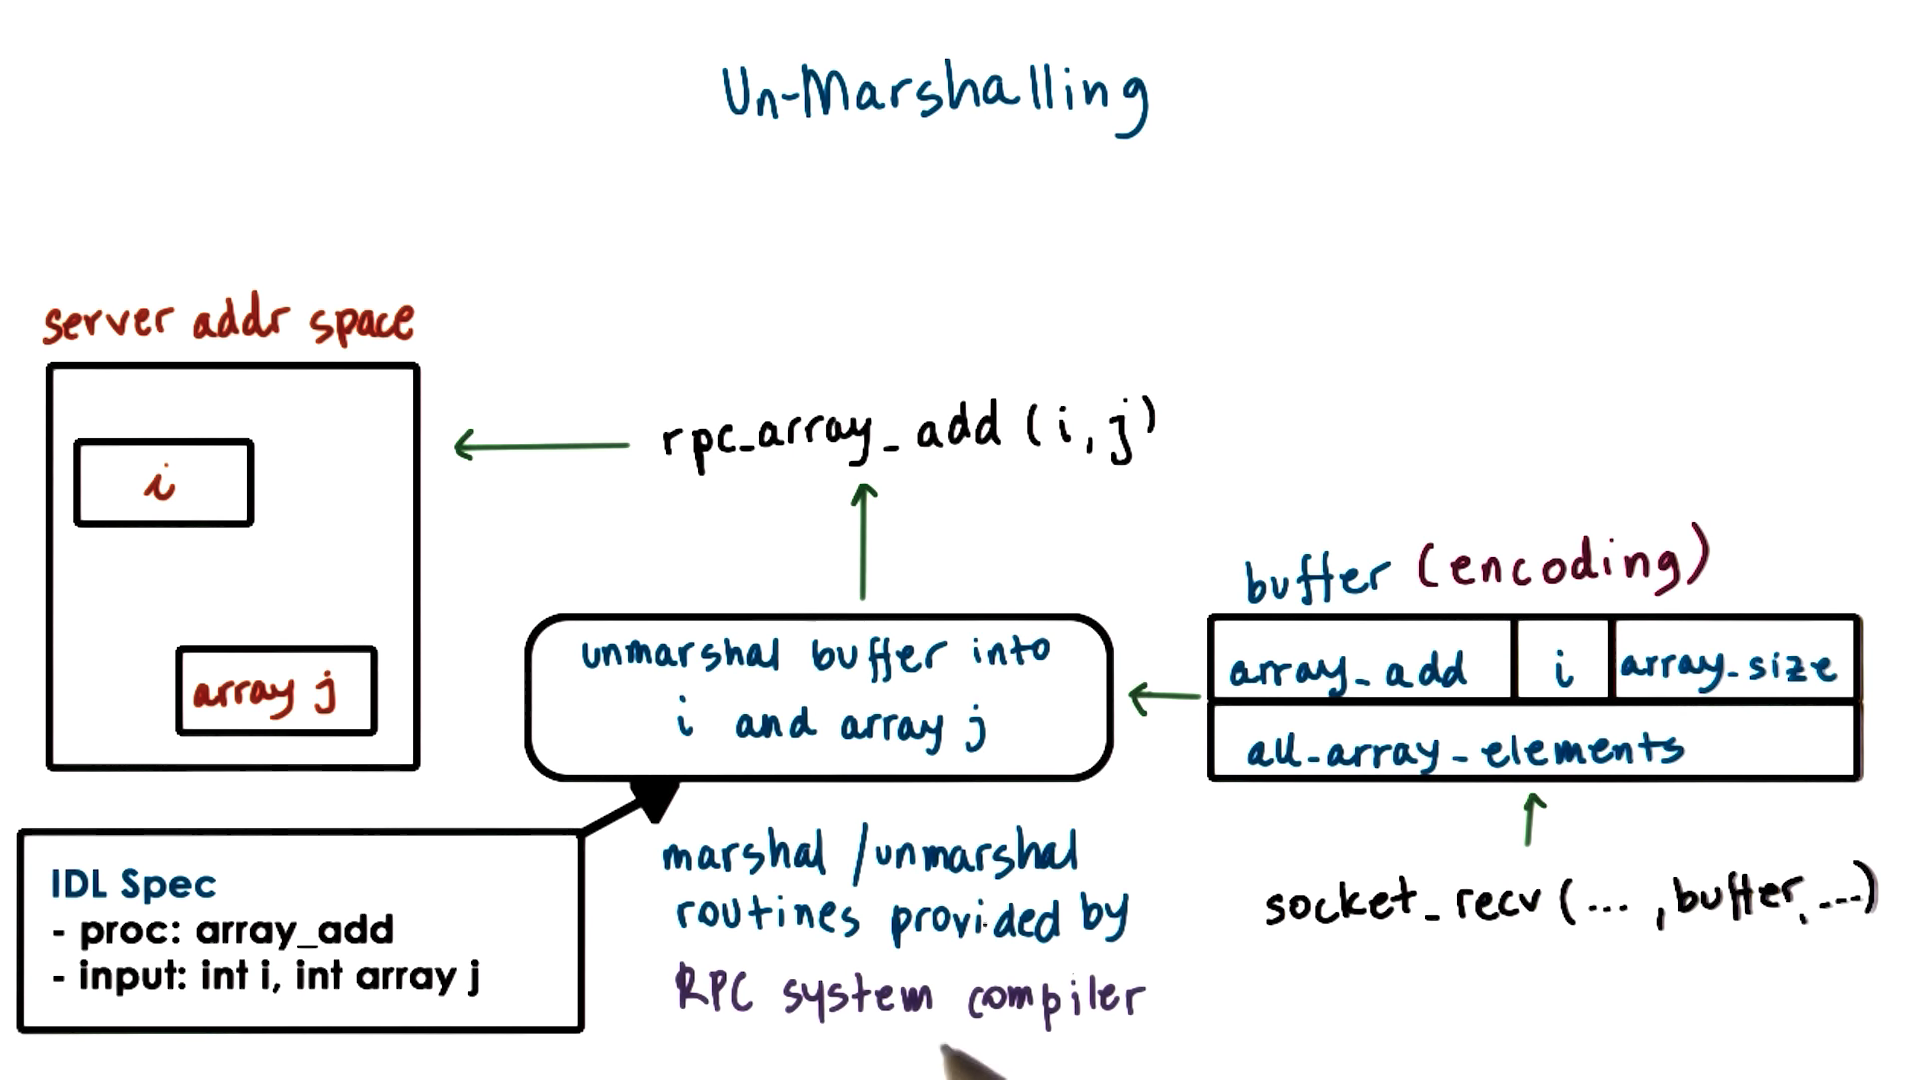 Un-Marshalling
server addr space
i
array j
rpc_array_add (i,j)
unmarshal buffer into
i and array j
buffer (encoding)
array_add i array_size
all_array_elements
socket_recv (... ,buffer, ...)
IDL Spec
- proc: array_add
- input: int i, int array j
marshal /unmarshal
routines provided by
RPC system compiler